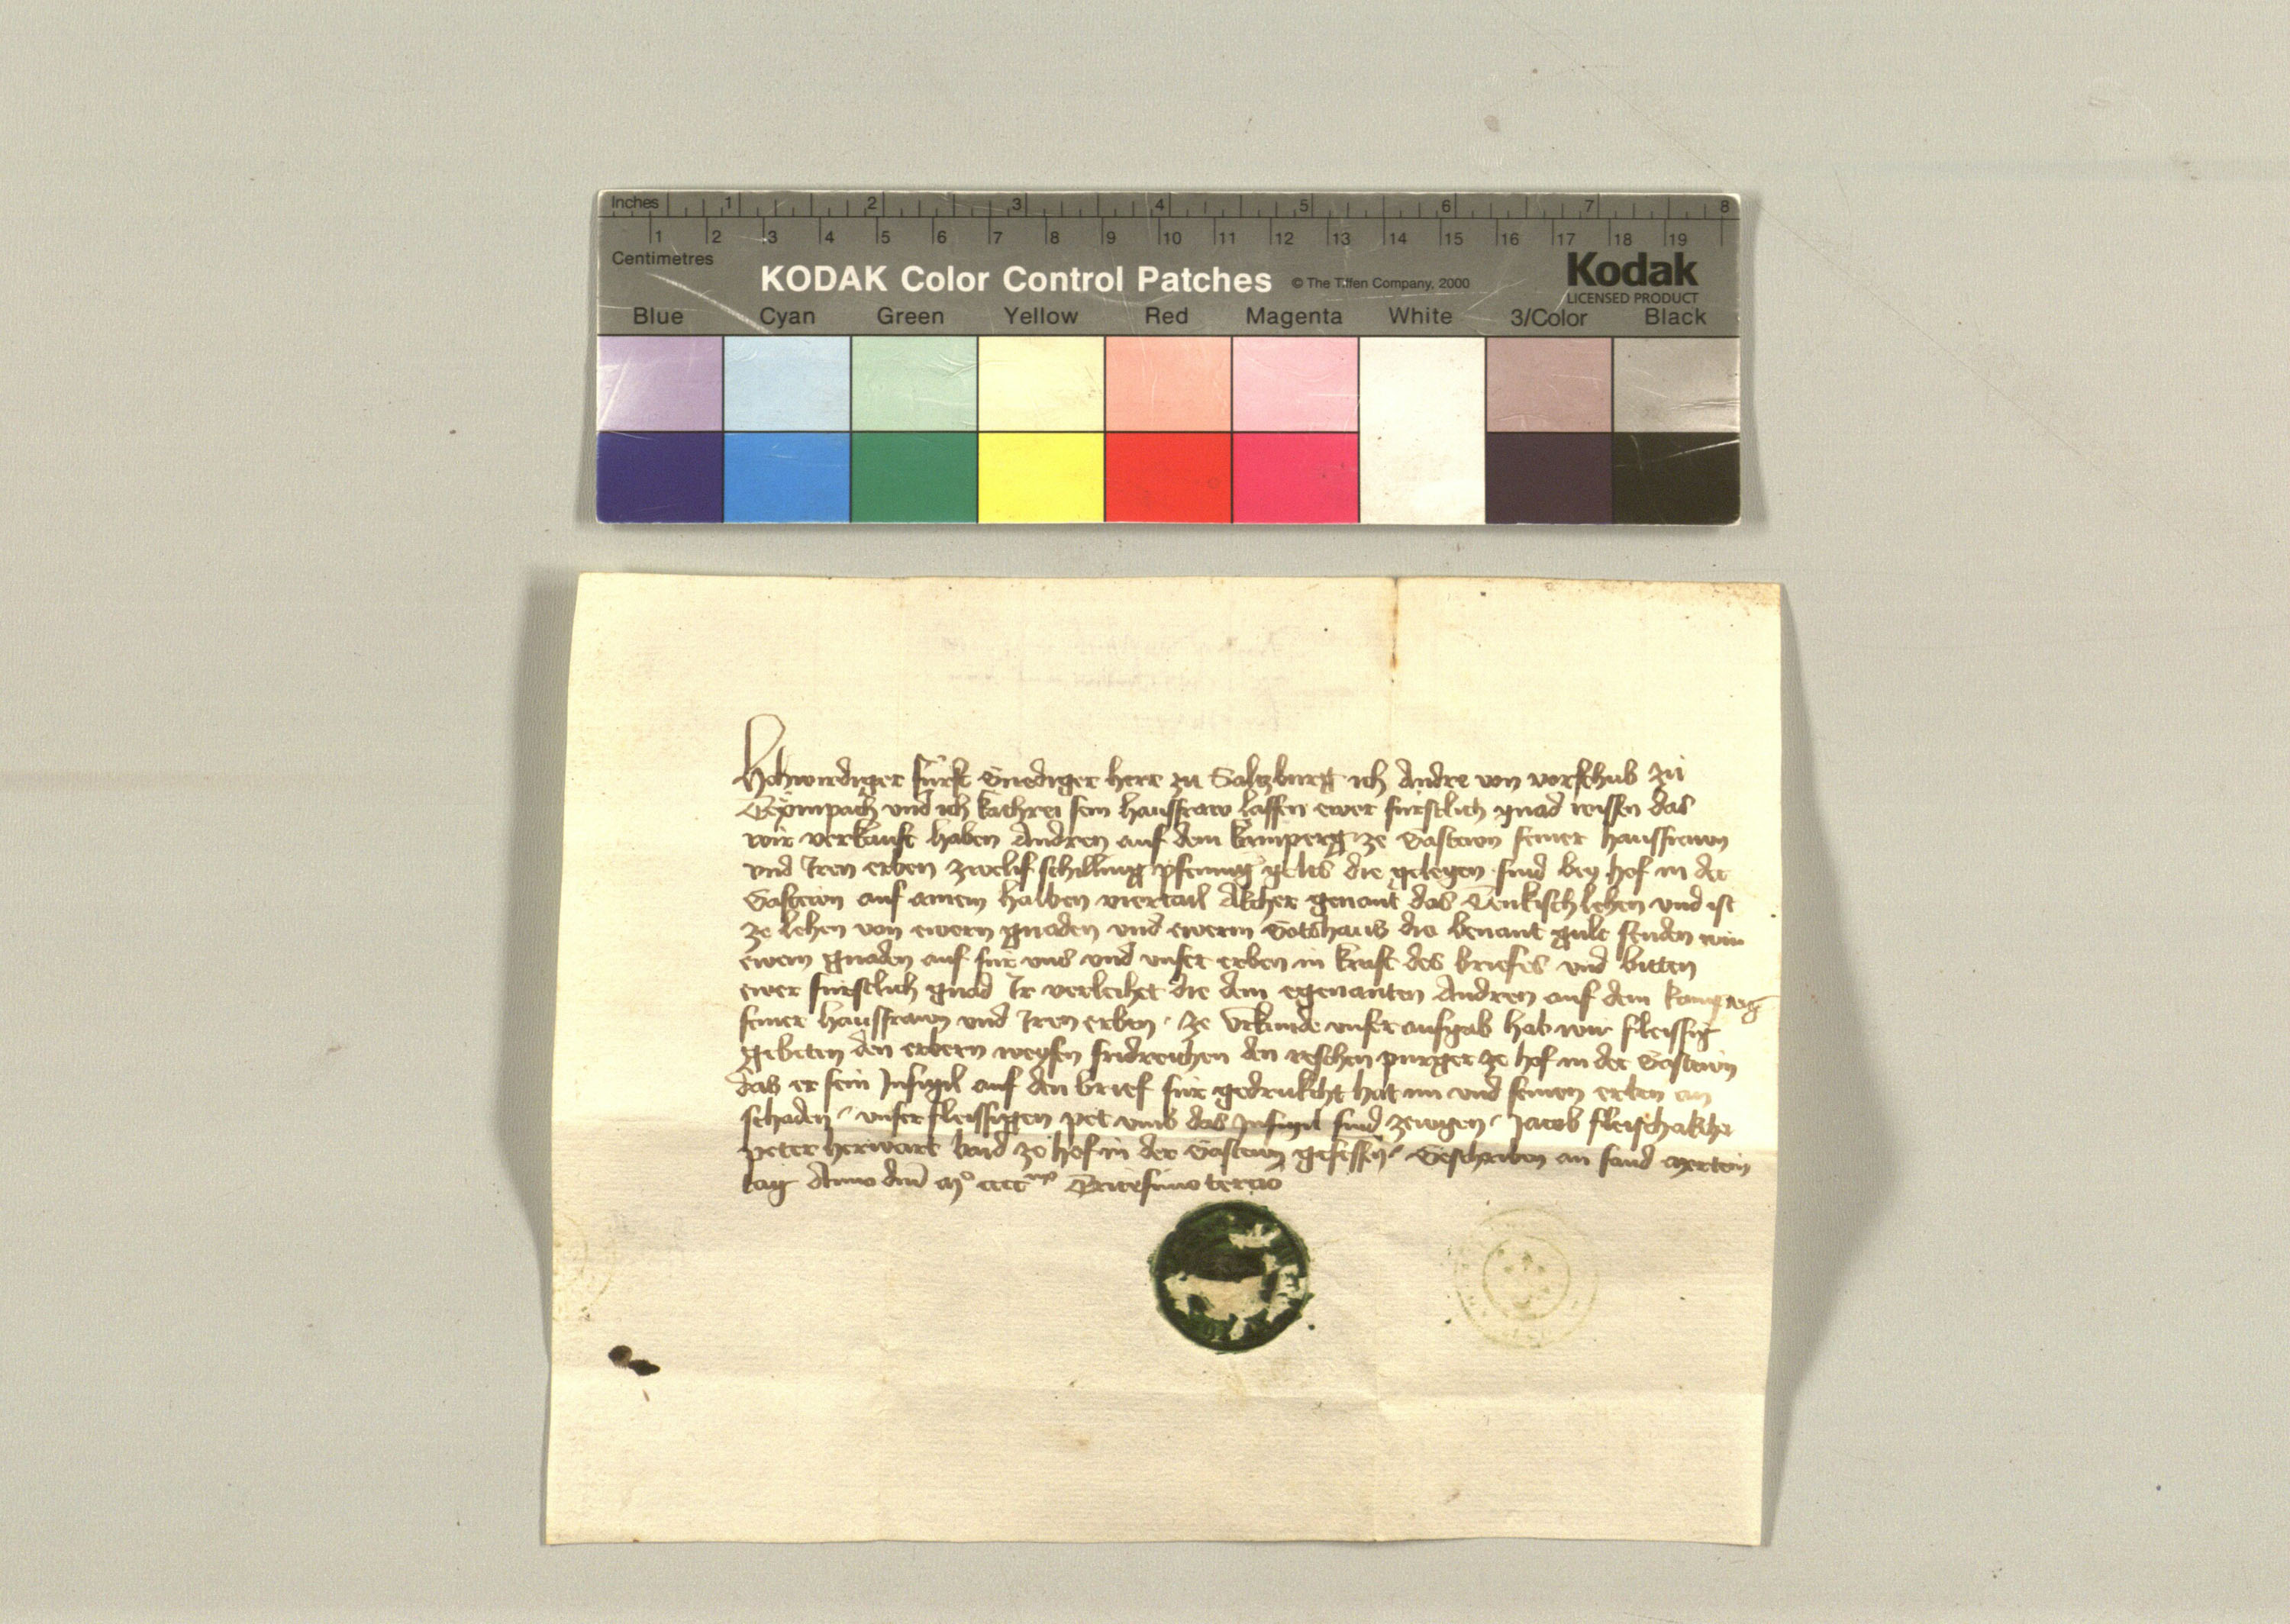 Inches 1 2 3 4 5 6 7 8
1 2 3 4 5 6 7 8 9 10 11 12 13 14 15 16 17 18 19
Centimetres
KODAK Color Control Patches © The Tiffen Company, 2000 Kodak
LICENSED PRODUCT
Blue Cyan Green Yellow Red Magenta White 3/Color Black
Hochwirdiger fürst Gnediger herr zu Saltzburg ich Andre von vorschub zu
und ich kathrei sein hausfraw lassen ewer fürstlich gnad wissen das
wir verkauft haben Andren auf dem ze Gastewn seiner hausfrawn
und Iren erben zwelif schilling pfennig gelts die gelegen sind bey hof in der
Gastewn auf ainem halben viertail Akcher genant das lehen und ist
ze lehen von ewern gnaden und ewerm Gotshaus die benant gült senden wir
ewern gnaden auf für uns und unser erben in kraft des briefes und bitten
ewer fürstlich gnad Ir verleihet die dem egenanten Andren auf dem
seiner hausfrawn und Iren erben / ze urkunde unser aufgab hab wir fleissig
gebeten den erbern weysen fridreichen den reschen purger ze hof in der Gastewn
das er sein Insigil auf den brief für gedrukcht hat im und seinen erben an
schaden / unser fleissigen pet umb das Insigil sind zewgen / Jacob fleischakcher
peter herwart baid ze hof in der Gastewn gesessen / Geschriben an sand Mertein
tag Anno dni mº ccccmo Tricesimo tercio